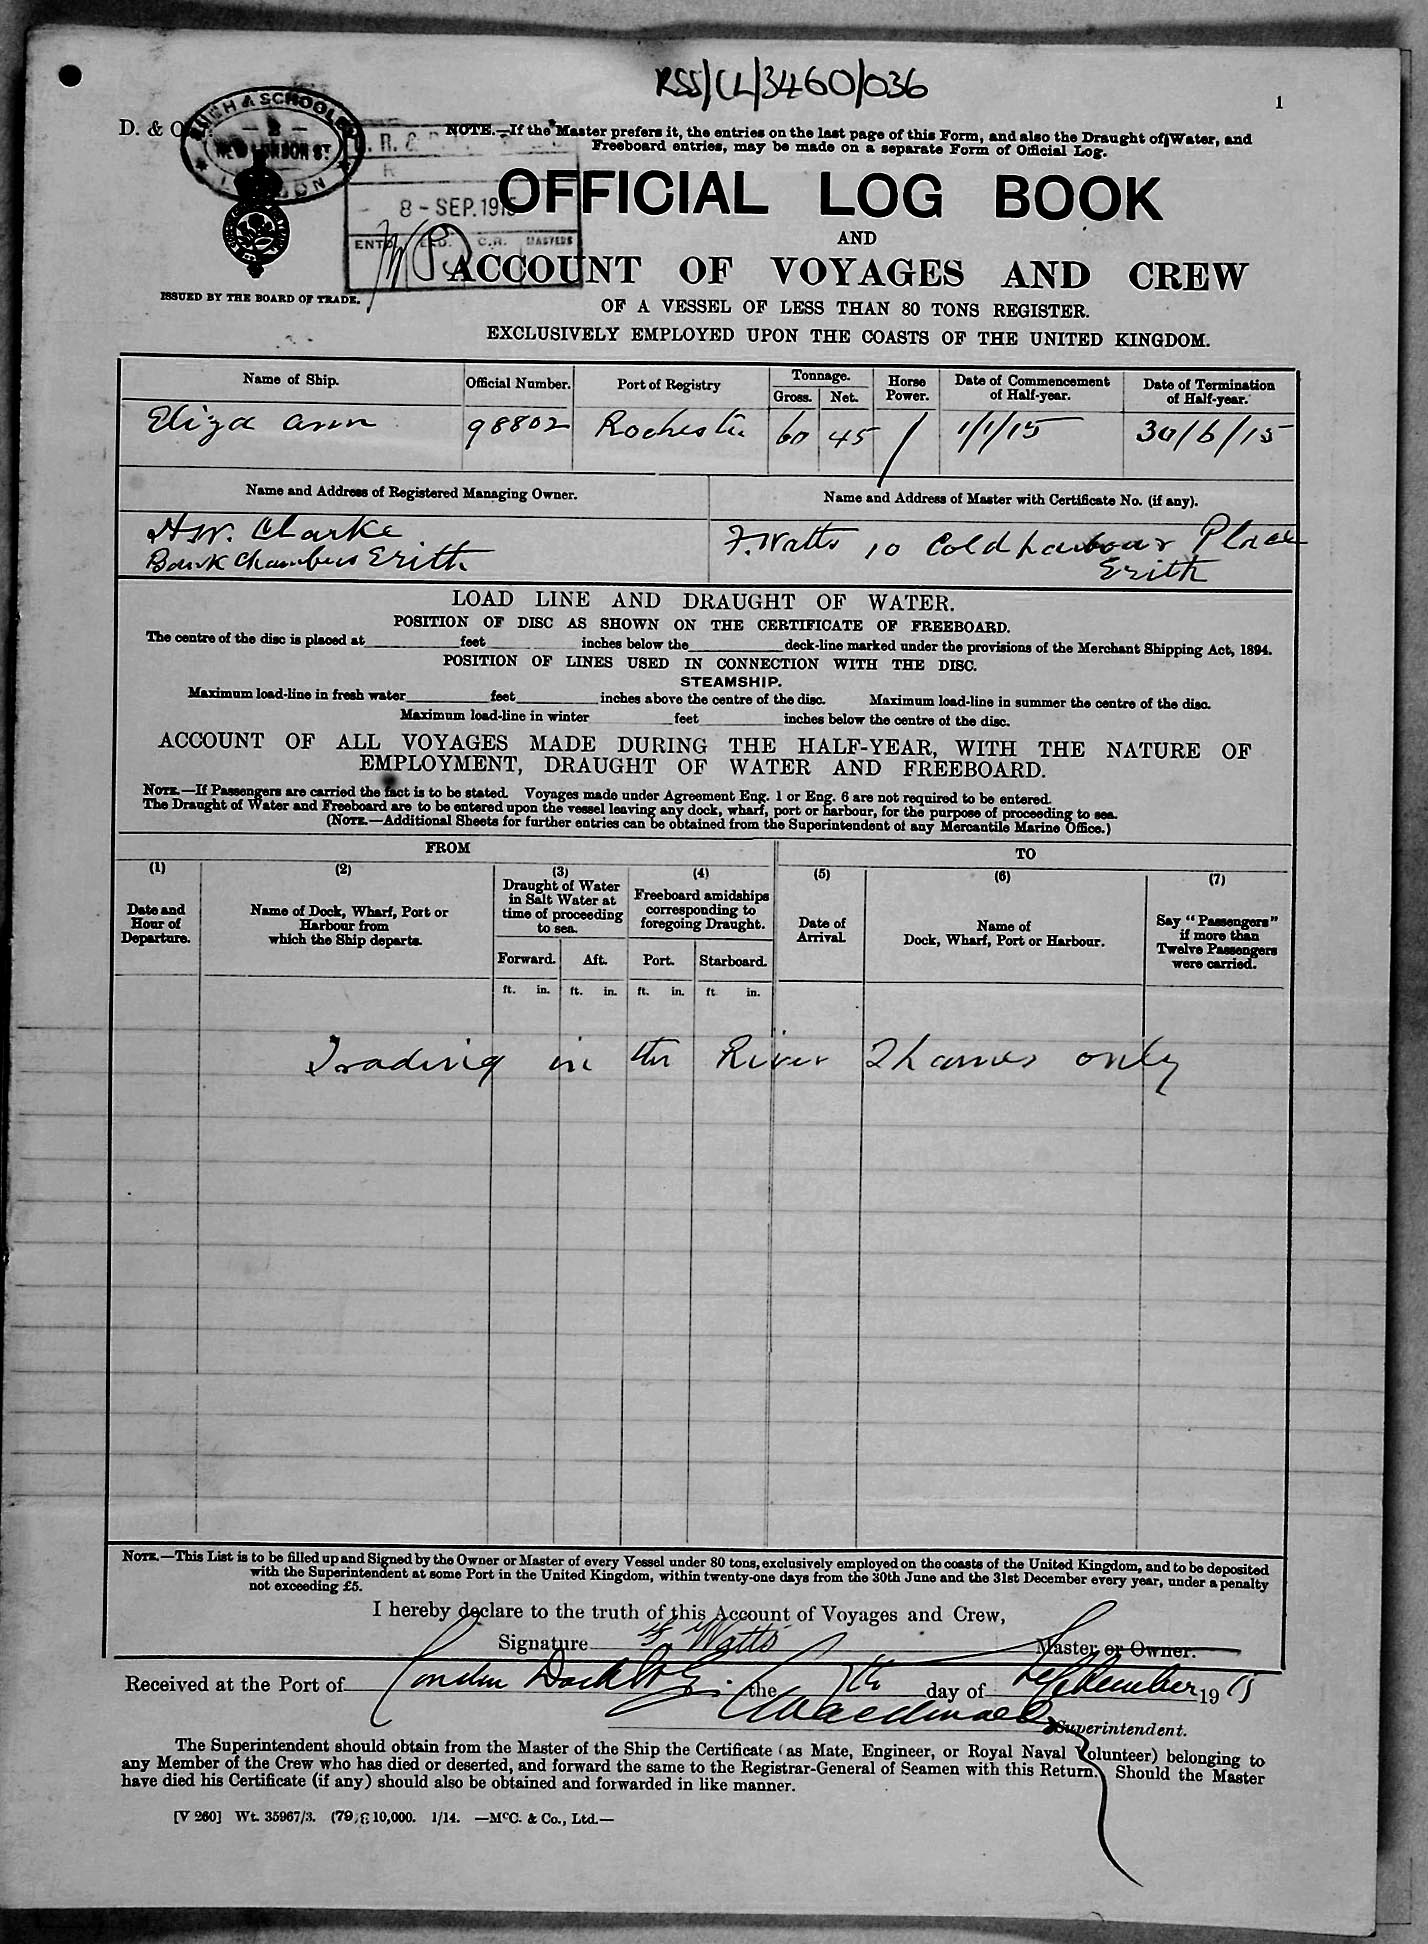 RSS/CL/3460/036
1
D. & O
& SCHOOLE
- 2 -
NEW LONDON ST.
R. &
8 - SEP. 191
C.R. MASTERS
NOTE.—If the Master prefers it, the entries on the last page of this Form, and also the Draught of Water, and
Freeboard entries, may be made on a separate Form of Official Log.
OFFICIAL LOG BOOK
AND
ACCOUNT OF VOYAGES AND CREW
ISSUED BY THE BOARD OF TRADE.
OF A VESSEL OF LESS THAN 80 TONS REGISTER.
EXCLUSIVELY EMPLOYED UPON THE COASTS OF THE UNITED KINGDOM.
Name of Ship. Official Number. Port of Registry Tonnage. Gross. Net. Horse Power. Date of Commencement of Half-year. Date of Termination of Half-year.
Eliza Ann 98802 Rochester 60 45 / 1/1/15 30/6/15
Name and Address of Registered Managing Owner. Name and Address of Master with Certificate No. (if any).
HW. Clarke
Bank Chambers Erith
F. Watts 10 Coldharbour Place
Erith
LOAD LINE AND DRAUGHT OF WATER.
POSITION OF DISC AS SHOWN ON THE CERTIFICATE OF FREEBOARD.
The centre of the disc is placed at feet inches below the deck-line marked under the provisions of the Merchant Shipping Act, 1894.
POSITION OF LINES USED IN CONNECTION WITH THE DISC.
STEAMSHIP.
Maximum load-line in fresh water feet inches above the centre of the disc. Maximum load-line in summer the centre of the disc.
Maximum load-line in winter feet inches below the centre of the disc.
ACCOUNT OF ALL VOYAGES MADE DURING THE HALF-YEAR, WITH THE NATURE OF
EMPLOYMENT, DRAUGHT OF WATER AND FREEBOARD.
NOTE.—If Passengers are carried the fact is to be stated. Voyages made under Agreement Eng. 1 or Eng. 6 are not required to be entered.
The Draught of Water and Freeboard are to be entered upon the vessel leaving any dock, wharf, port or harbour, for the purpose of proceeding to sea.
(NOTE.—Additional Sheets for further entries can be obtained from the Superintendent of any Mercantile Marine Office.)
FROM TO
(1) (2) (3) (4) (5) (6) (7)
Date and
Hour of
Departure.
Name of Dock, Wharf, Port or
Harbour from
which the Ship departs.
Draught of Water
in Salt Water at
time of proceeding
to sea.
Freeboard amidships
corresponding to
foregoing Draught.
Date of
Arrival.
Name of
Dock, Wharf, Port or Harbour.
Say "Passengers"
if more than
Twelve Passengers
were carried.
Forward. Aft. Port. Starboard.
ft. in. ft. in. ft. in. ft in.
Trading in the River Thames only
NOTE.—This List is to be filled up and Signed by the Owner or Master of every Vessel under 80 tons, exclusively employed on the coasts of the United Kingdom, and to be deposited
with the Superintendent at some Port in the United Kingdom, within twenty-one days from the 30th June and the 31st December every year, under a penalty
not exceeding £5.
I hereby declare to the truth of this Account of Voyages and Crew,
Signature F Watts Master or Owner.
Received at the Port of London Dock St the 7th day of September 1915
Superintendent.
The Superintendent should obtain from the Master of the Ship the Certificate (as Mate, Engineer, or Royal Naval Volunteer) belonging to
any Member of the Crew who has died or deserted, and forward the same to the Registrar-General of Seamen with this Return. Should the Master
have died his Certificate (if any) should also be obtained and forwarded in like manner.
[V 260] Wt. 35967/3. 10,000. 1/14. —McC. & Co., Ltd.—